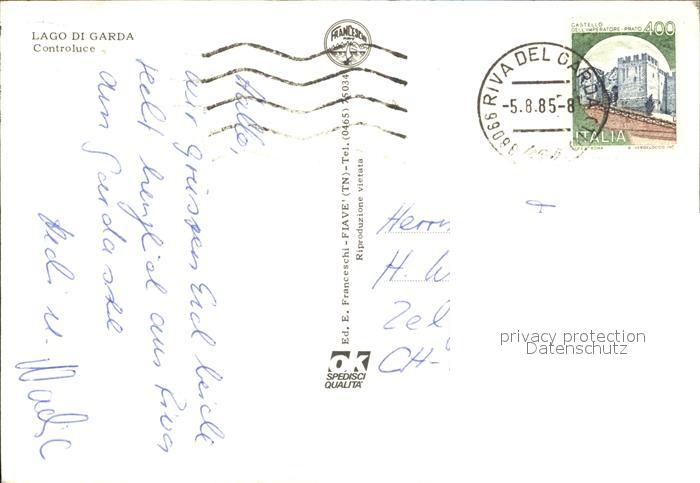 LAGO DI GARDA
Controluce
FRANCESCHI
CASTELLO
DELL'IMPERATORE-PRATO 400
ITALIA
38066 RIVA DEL GARDA
-5.8.85-8
Ed. E. Franceschi - FIAVE' (TN) - Tel. (0465) 75034
Riproduzione vietata
OK
SPEDISCI
QUALITA'
Hallo,
wir grüssen Euch beide
recht herzlich aus Riva
am Gardasee
Hedi u.
Herrn
H. W
CH-
privacy protection
Datenschutz